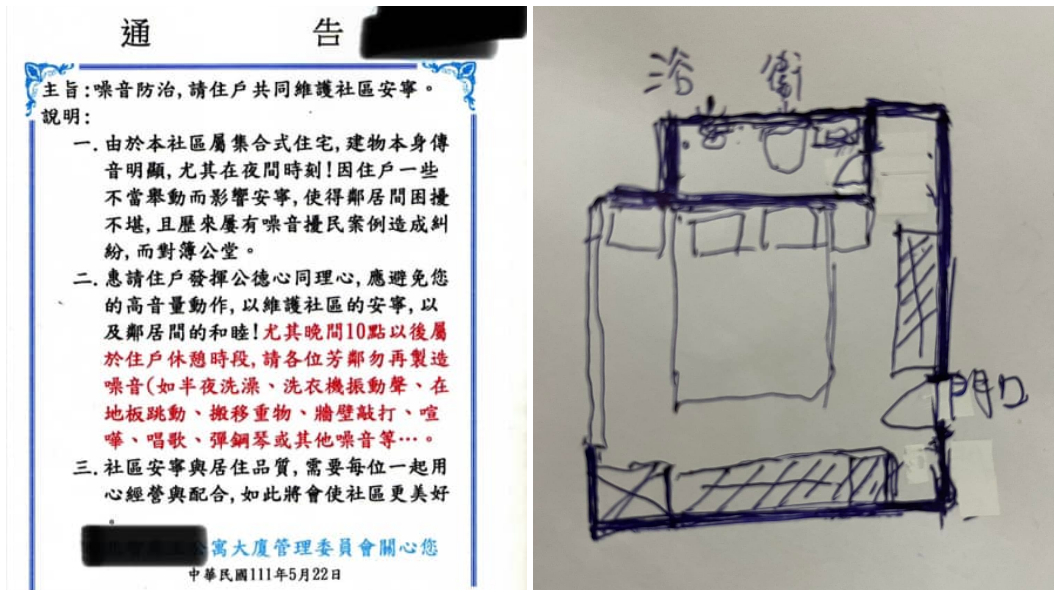 通 告
主旨:噪音防治,請住戶共同維護社區安寧。
說明:
一. 由於本社區屬集合式住宅,建物本身傳
音明顯,尤其在夜間時刻!因住戶一些
不當舉動而影響安寧,使得鄰居間困擾
不堪,且歷來屢有噪音擾民案例造成糾
紛,而對薄公堂。
二. 惠請住戶發揮公德心同理心,應避免您
的高音量動作,以維護社區的安寧,以
及鄰居間的和睦!尤其晚間10點以後屬
於住戶休憩時段,請各位芳鄰勿再製造
噪音(如半夜洗澡、洗衣機振動聲、在
地板跳動、搬移重物、牆壁敲打、喧
嘩、唱歌、彈鋼琴或其他噪音等…。
三. 社區安寧與居住品質,需要每位一起用
心經營與配合,如此將會使社區更美好
。
公寓大廈管理委員會關心您
中華民國111年5月22日
浴 衛
門口